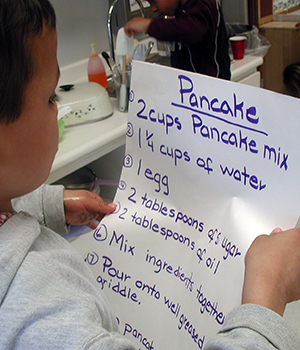 Pancake
① 2 cups Pancake mix
② 1 ¼ cups of water
③ 1 egg
④ 2 tablespoons of sugar
⑤ 2 tablespoons of oil
⑥ Mix ingredients together
⑦ Pour onto well greased
griddle.
pancake